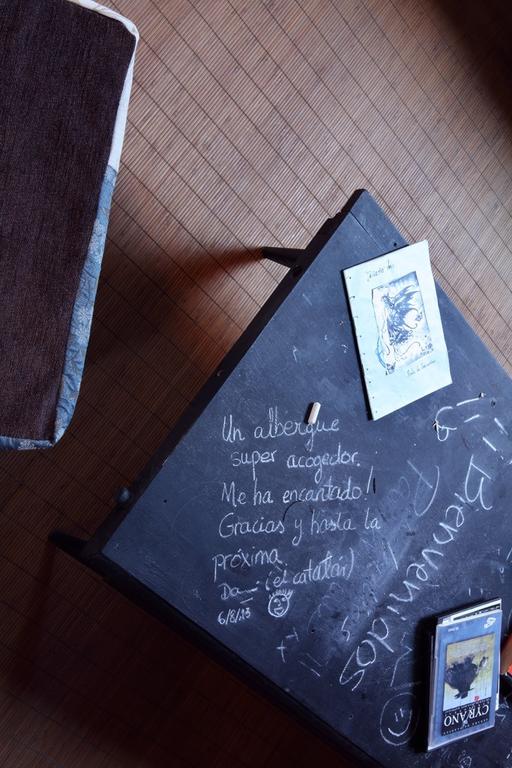 Un albergue
super acogedor.
Me ha encantado!
Gracias y hasta la
próxima.
Dani (el catalán)
6/8/13
¡¡Bienvenidos
CYRANO